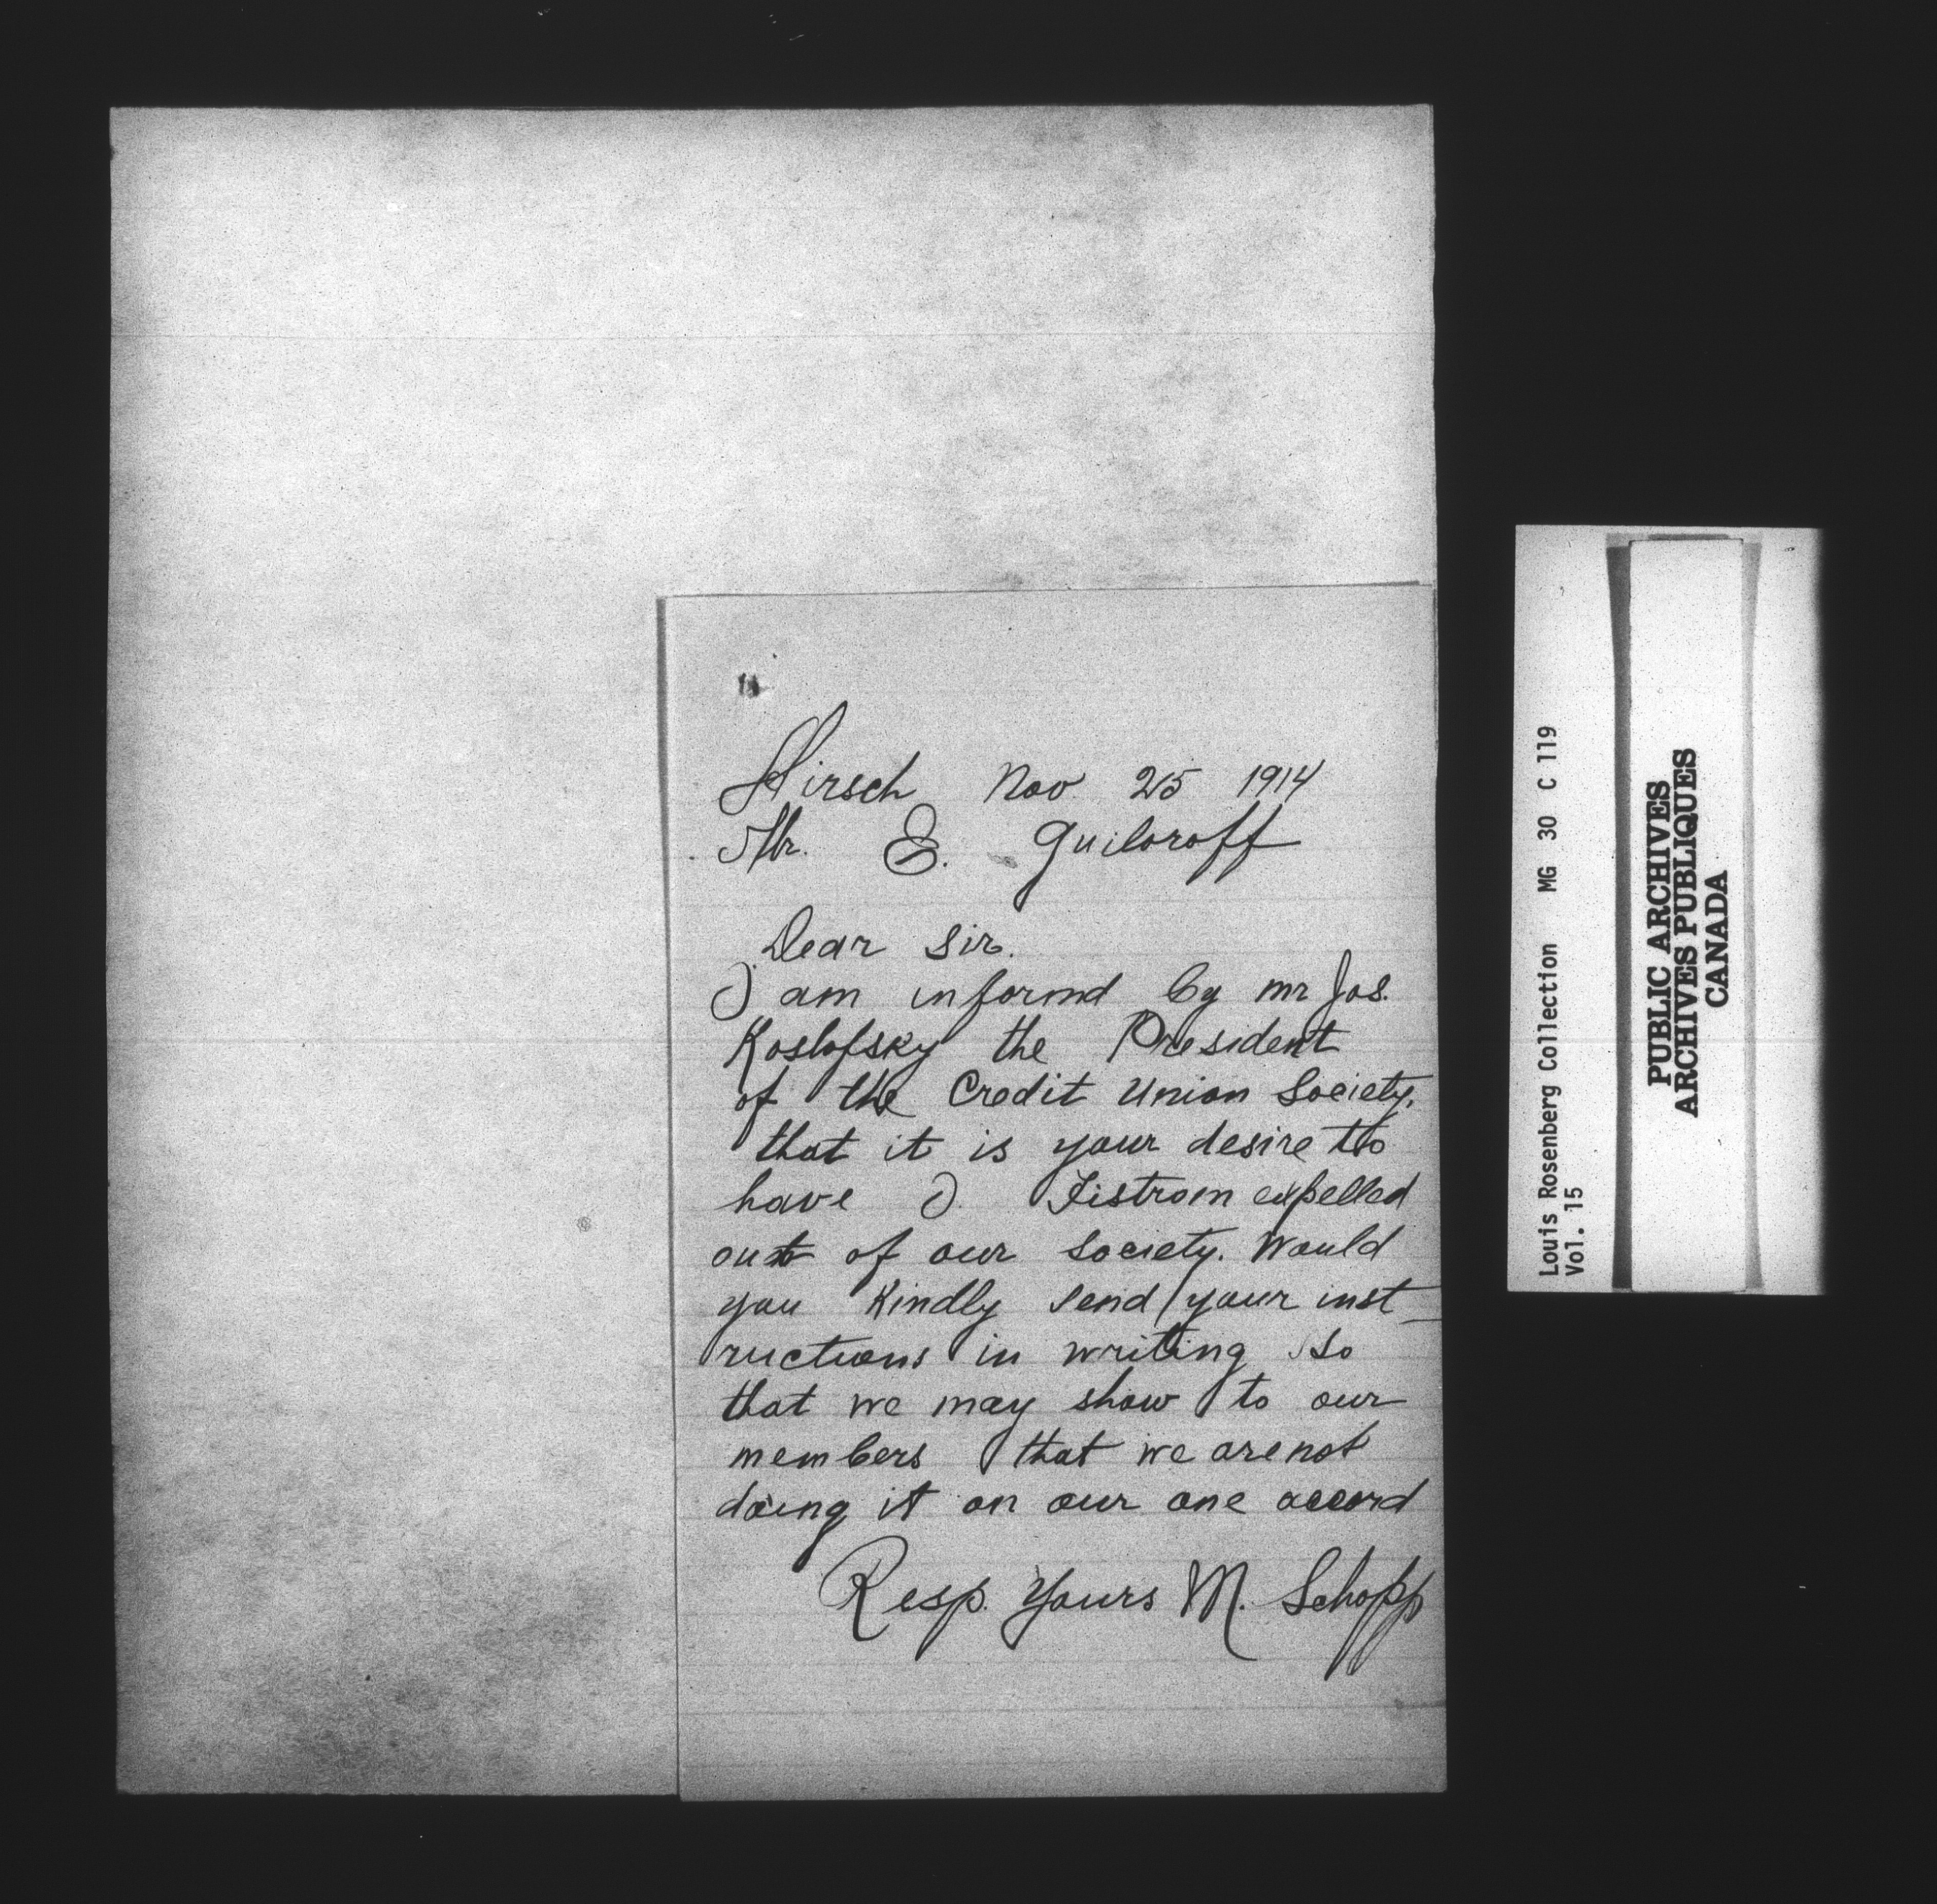 Hirsch Nov 25 1914
Mr. E. Guiloroff
Dear Sir.
I am informd by mr Jos.
Koslofsky the President
of the Credit Union Society.
that it is your desire to
have I. Fistrom expelled
out of our society. Would
you kindly send your inst
ructions in writing so
that we may show to our
members that we are not
doing it on our one accord
Resp. Yours M. Schopp
Louis Rosenberg Collection MG 30 C 119
Vol. 15
PUBLIC ARCHIVES
ARCHIVES PUBLIQUES
CANADA